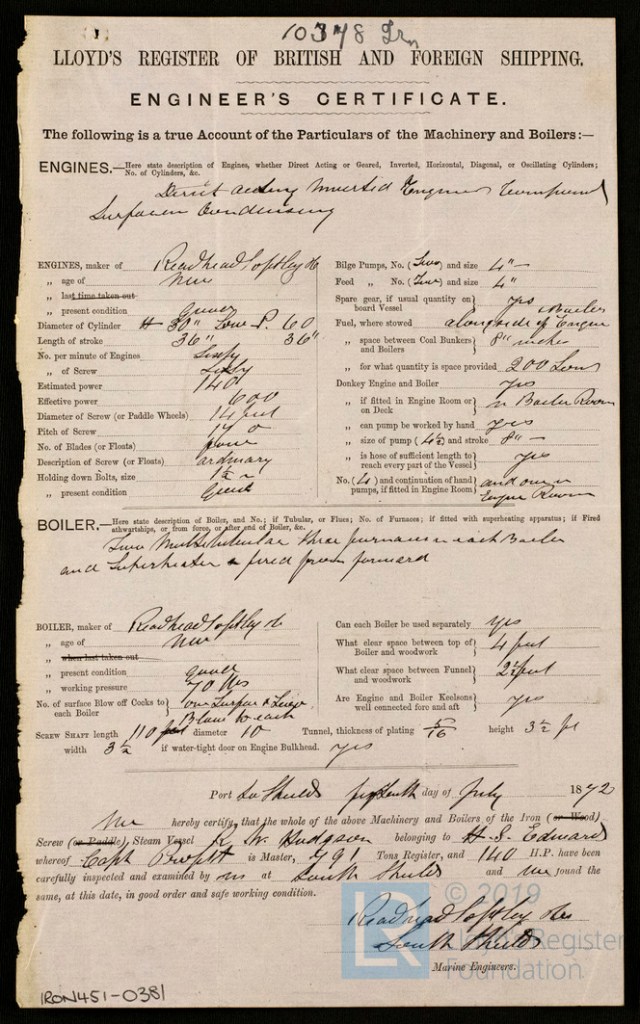 10378 Irn
LLOYD'S REGISTER OF BRITISH AND FOREIGN SHIPPING.
ENGINEER'S CERTIFICATE.
The following is a true Account of the Particulars of the Machinery and Boilers:—
ENGINES.—Here state description of Engines, whether Direct Acting or Geared, Inverted, Horizontal, Diagonal, or Oscillating Cylinders;
No. of Cylinders, &c.
Direct acting Inverted Engines Compound
Surface Condensing
ENGINES, maker of Readhead Softley & Co
„ age of New
„ last time taken out
„ present condition Good
Diameter of Cylinder H 30" Low P. 60
Length of stroke 36" 36"
No. per minute of Engines Sixty
„ of Screw Sixty
Estimated power 140
Effective power 600
Diameter of Screw (or Paddle Wheels) 14 feet
Pitch of Screw 17 0
No. of Blades (or Floats) four
Description of Screw (or Floats) ordinary
Holding down Bolts, size
„ present condition Good
Bilge Pumps, No. (Two) and size 4"
Feed „ No. (Two) and size 4"
Spare gear, if usual quantity on board Vessel } yes
Fuel, where stored alongside of Engine Boiler
„ space between Coal Bunkers and Boilers } 8" inches
„ for what quantity is space provided 200 Tons
Donkey Engine and Boiler yes
„ if fitted in Engine Room or on Deck } in Boiler Room
„ can pump be worked by hand yes
„ size of pump (4½ and stroke 8"
„ is hose of sufficient length to reach every part of the Vessel } yes
No. (4) and continuation of hand pumps, if fitted in Engine Room } and one in Engine Room
BOILER.—Here state description of Boiler, and No.; if Tubular, or Flues; No. of Furnaces; if fitted with superheating apparatus; if Fired
athwartships, or from fore, or after end of Boiler, &c.
Two Multitubular three furnaces in each Boiler
and Superheater fired from forward
BOILER, maker of Readhead Softley & Co
„ age of New
„ when last taken out
„ present condition Good
„ working pressure 70 lbs
No. of surface Blow off Cocks to each Boiler } one Surface & Blow to each
Can each Boiler be used separately yes
What clear space between top of Boiler and woodwork } 4 feet
What clear space between Funnel and woodwork } 2½ feet
Are Engine and Boiler Keelsons well connected fore and aft } yes
SCREW SHAFT length 110 feet diameter 10 Tunnel, thickness of plating 5/16 height 3½ ft
width 3½ if water-tight door on Engine Bulkhead. yes
Port So Shields day of July 1872
We hereby certify, that the whole of the above Machinery and Boilers of the Iron (or Wood)
Screw (or Paddle) Steam Vessel R. W. Hudgson belonging to H. S. Edward
whereof Capt is Master, 791 Tons Register, and 140 H.P. have been
carefully inspected and examined by us at South Shields and we found the
same, at this date, in good order and safe working condition.
Readhead Softley & Co
South Shields
Marine Engineers.
LR © 2019
Lloyd's Register
Foundation
IRON451-0381